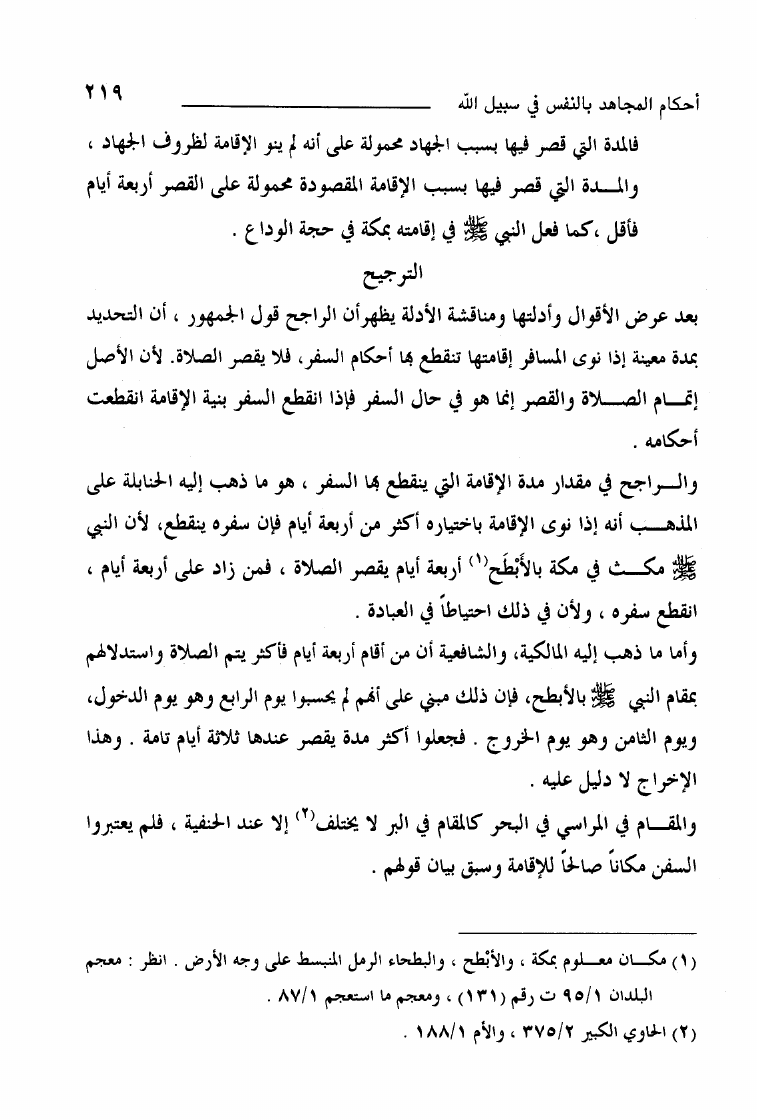 أحكام المجاهد بالنفس في سبيل الله ٢١٩
فالمدة التي قصر فيها بسبب الجهاد محمولة على أنه لم ينو الإقامة لظروف الجهاد ،
والمـــدة التي قصر فيها بسبب الإقامة المقصودة محمولة على القصر أربعة أيام
فأقل ،كما فعل النبي ﷺ في إقامته بمكة في حجة الوداع .
الترجيح
بعد عرض الأقوال وأدلتها ومناقشة الأدلة يظهرأن الراجح قول الجمهور ، أن التحديد
بمدة معينة إذا نوى المسافر إقامتها تنقطع بها أحكام السفر، فلا يقصر الصلاة. لأن الأصل
إتمـــام الصـــلاة والقصر إنما هو في حال السفر فإذا انقطع السفر بنية الإقامة انقطعت
أحكامه .
والـــراجح في مقدار مدة الإقامة التي ينقطع بها السفر ، هو ما ذهب إليه الحنابلة على
المذهـــب أنه إذا نوى الإقامة باختياره أكثر من أربعة أيام فإن سفره ينقطع، لأن النبي
ﷺ مكـــث في مكة بالأَبْطَح(١) أربعة أيام يقصر الصلاة ، فمن زاد على أربعة أيام ،
انقطع سفره ، ولأن في ذلك احتياطاً في العبادة .
وأما ما ذهب إليه المالكية، والشافعية أن من أقام أربعة أيام فأكثر يتم الصلاة واستدلالهم
بمقام النبي ﷺ بالأبطح، فإن ذلك مبني على أنهم لم يحسبوا يوم الرابع وهو يوم الدخول،
ويوم الثامن وهو يوم الخروج . فجعلوا أكثر مدة يقصر عندها ثلاثة أيام تامة . وهذا
الإخراج لا دليل عليه .
والمقـــام في المراسي في البحر كالمقام في البر لا يختلف(٢) إلا عند الحنفية ، فلم يعتبروا
السفن مكاناً صالحاً للإقامة وسبق بيان قولهم .
(١) مكـــان معـــلوم بمكة ، والأبْطح ، والبطحاء الرمل المنبسط على وجه الأرض . انظر : معجم
البلدان ٩٥/١ ت رقم (١٣١) ، ومعجم ما استعجم ٨٧/١ .
(٢) الحاوي الكبير ٣٧٥/٢ ، والأم ١٨٨/١ .